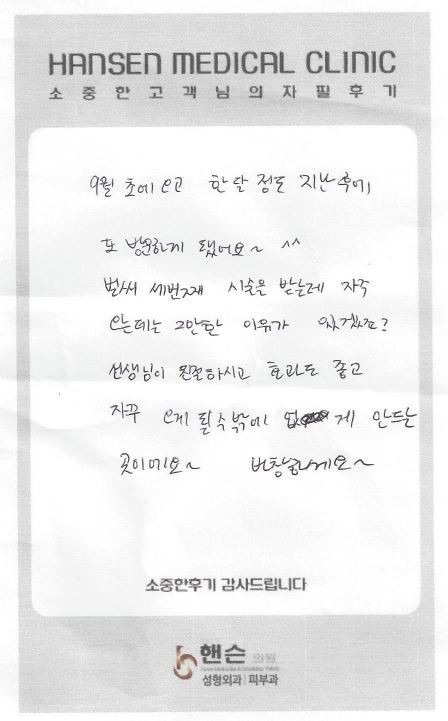 HANSEN MEDICAL CLINIC
소중한고객님의자필후기
9월 초에 오고 한달 정도 지난 후에,
또 방문하게 됐어요~ ^^
벌써 세번째 시술은 받는데 자주
오는데는 그만한 이유가 있겠죠?
선생님이 친절하시고 효과도 좋고
자꾸 오게 될수밖에 없게 만드는
곳이에요~ 번창하세요~
소중한후기 감사드립니다
핸슨 의원
성형외과 피부과